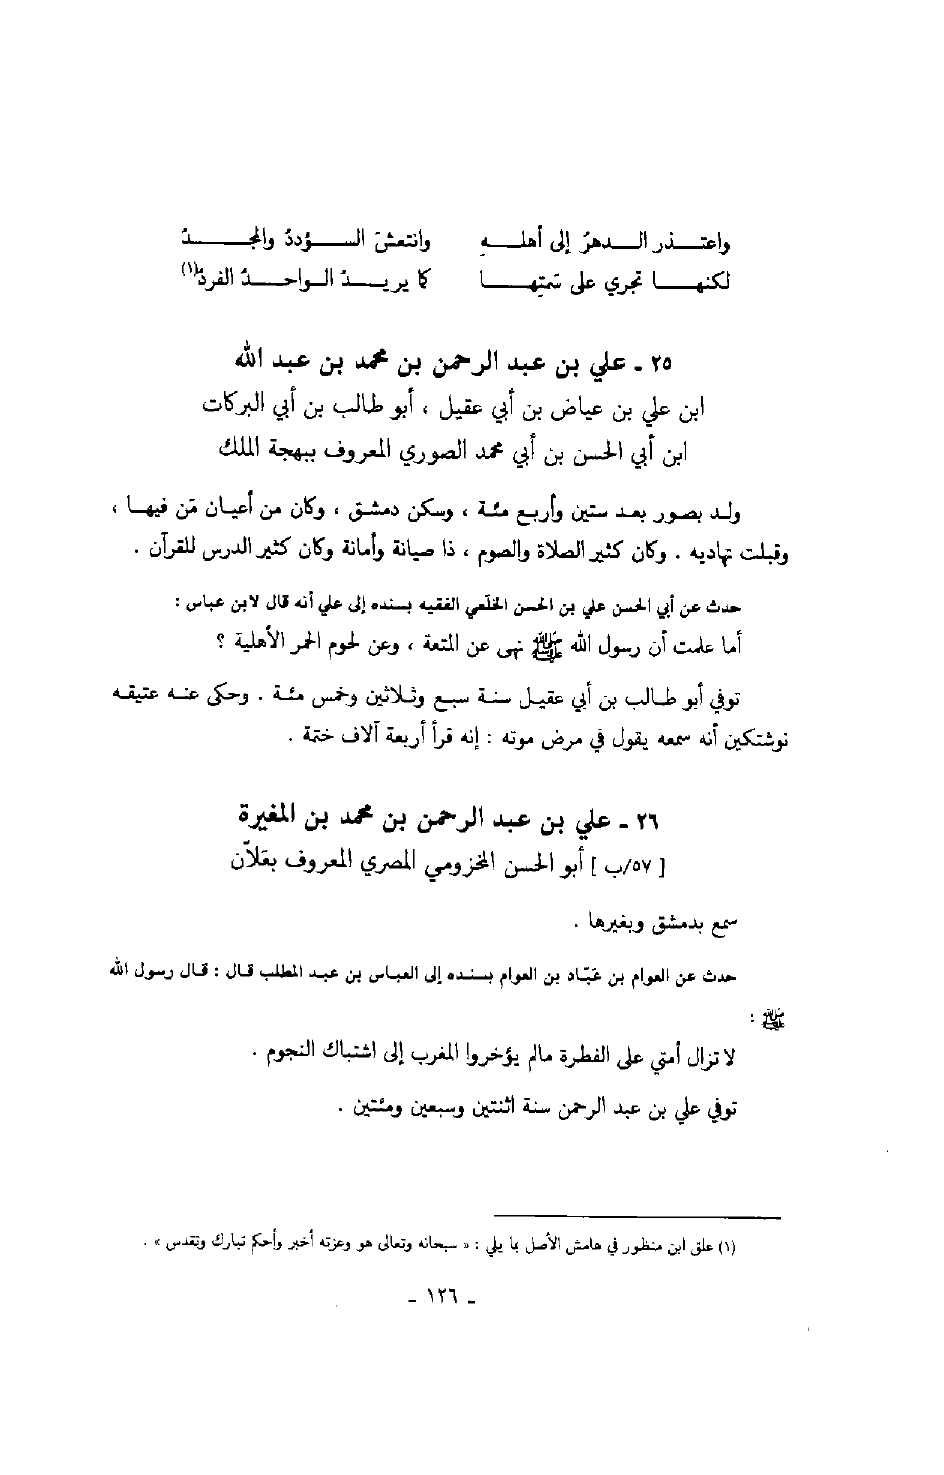 واعتذر الدهرُ إلى أهلهِ وانتعشَ السؤددُ والمجدُ
لكنها تجري على سَمتِها كما يريدُ الواحدُ الفردُ(١)
٢٥ ـ علي بن عبد الرحمن بن محمد بن عبد الله
ابن علي بن عياض بن أبي عقيل ، أبو طالب بن أبي البركات
ابن أبي الحسن بن أبي محمد الصوري المعروف ببهجة الملك
ولد بصور بعد ستين وأربع مئة ، وسكن دمشق ، وكان من أعيان مَن فيها ،
وقبلت تهاديه . وكان كثير الصلاة والصوم ، ذا صيانة وأمانة وكان كثير الدرس للقرآن .
حدث عن أبي الحسن علي بن الحسن الخلعي الفقيه بسنده إلى علي أنه قال لابن عباس :
أما علمت أن رسول الله ﷺ نهى عن المتعة ، وعن لحوم الحمر الأهلية ؟
توفي أبو طالب بن أبي عقيل سنة سبع وثلاثين وخمس مئة . وحكى عنه عتيقه
نوشتكين أنه سمعه يقول في مرض موته : إنه قرأ أربعة آلاف ختمة .
٢٦ ـ علي بن عبد الرحمن بن محمد بن المغيرة
[ ٥٧/ب ] أبو الحسن المخزومي المصري المعروف بعَلاّن
سمع بدمشق وبغيرها .
حدث عن العوام بن عَبّاد بن العوام بسنده إلى العباس بن عبد المطلب قال : قال رسول الله
ﷺ :
لا تزال أمتي على الفطرة مالم يؤخروا المغرب إلى اشتباك النجوم .
توفي علي بن عبد الرحمن سنة اثنتين وسبعين ومئتين .
(١) علق ابن منظور في هامش الأصل بما يلي : « سبحانه وتعالى هو وعزته أخبر وأحكم تبارك وتقدس » .
ـ ١٢٦ ـ